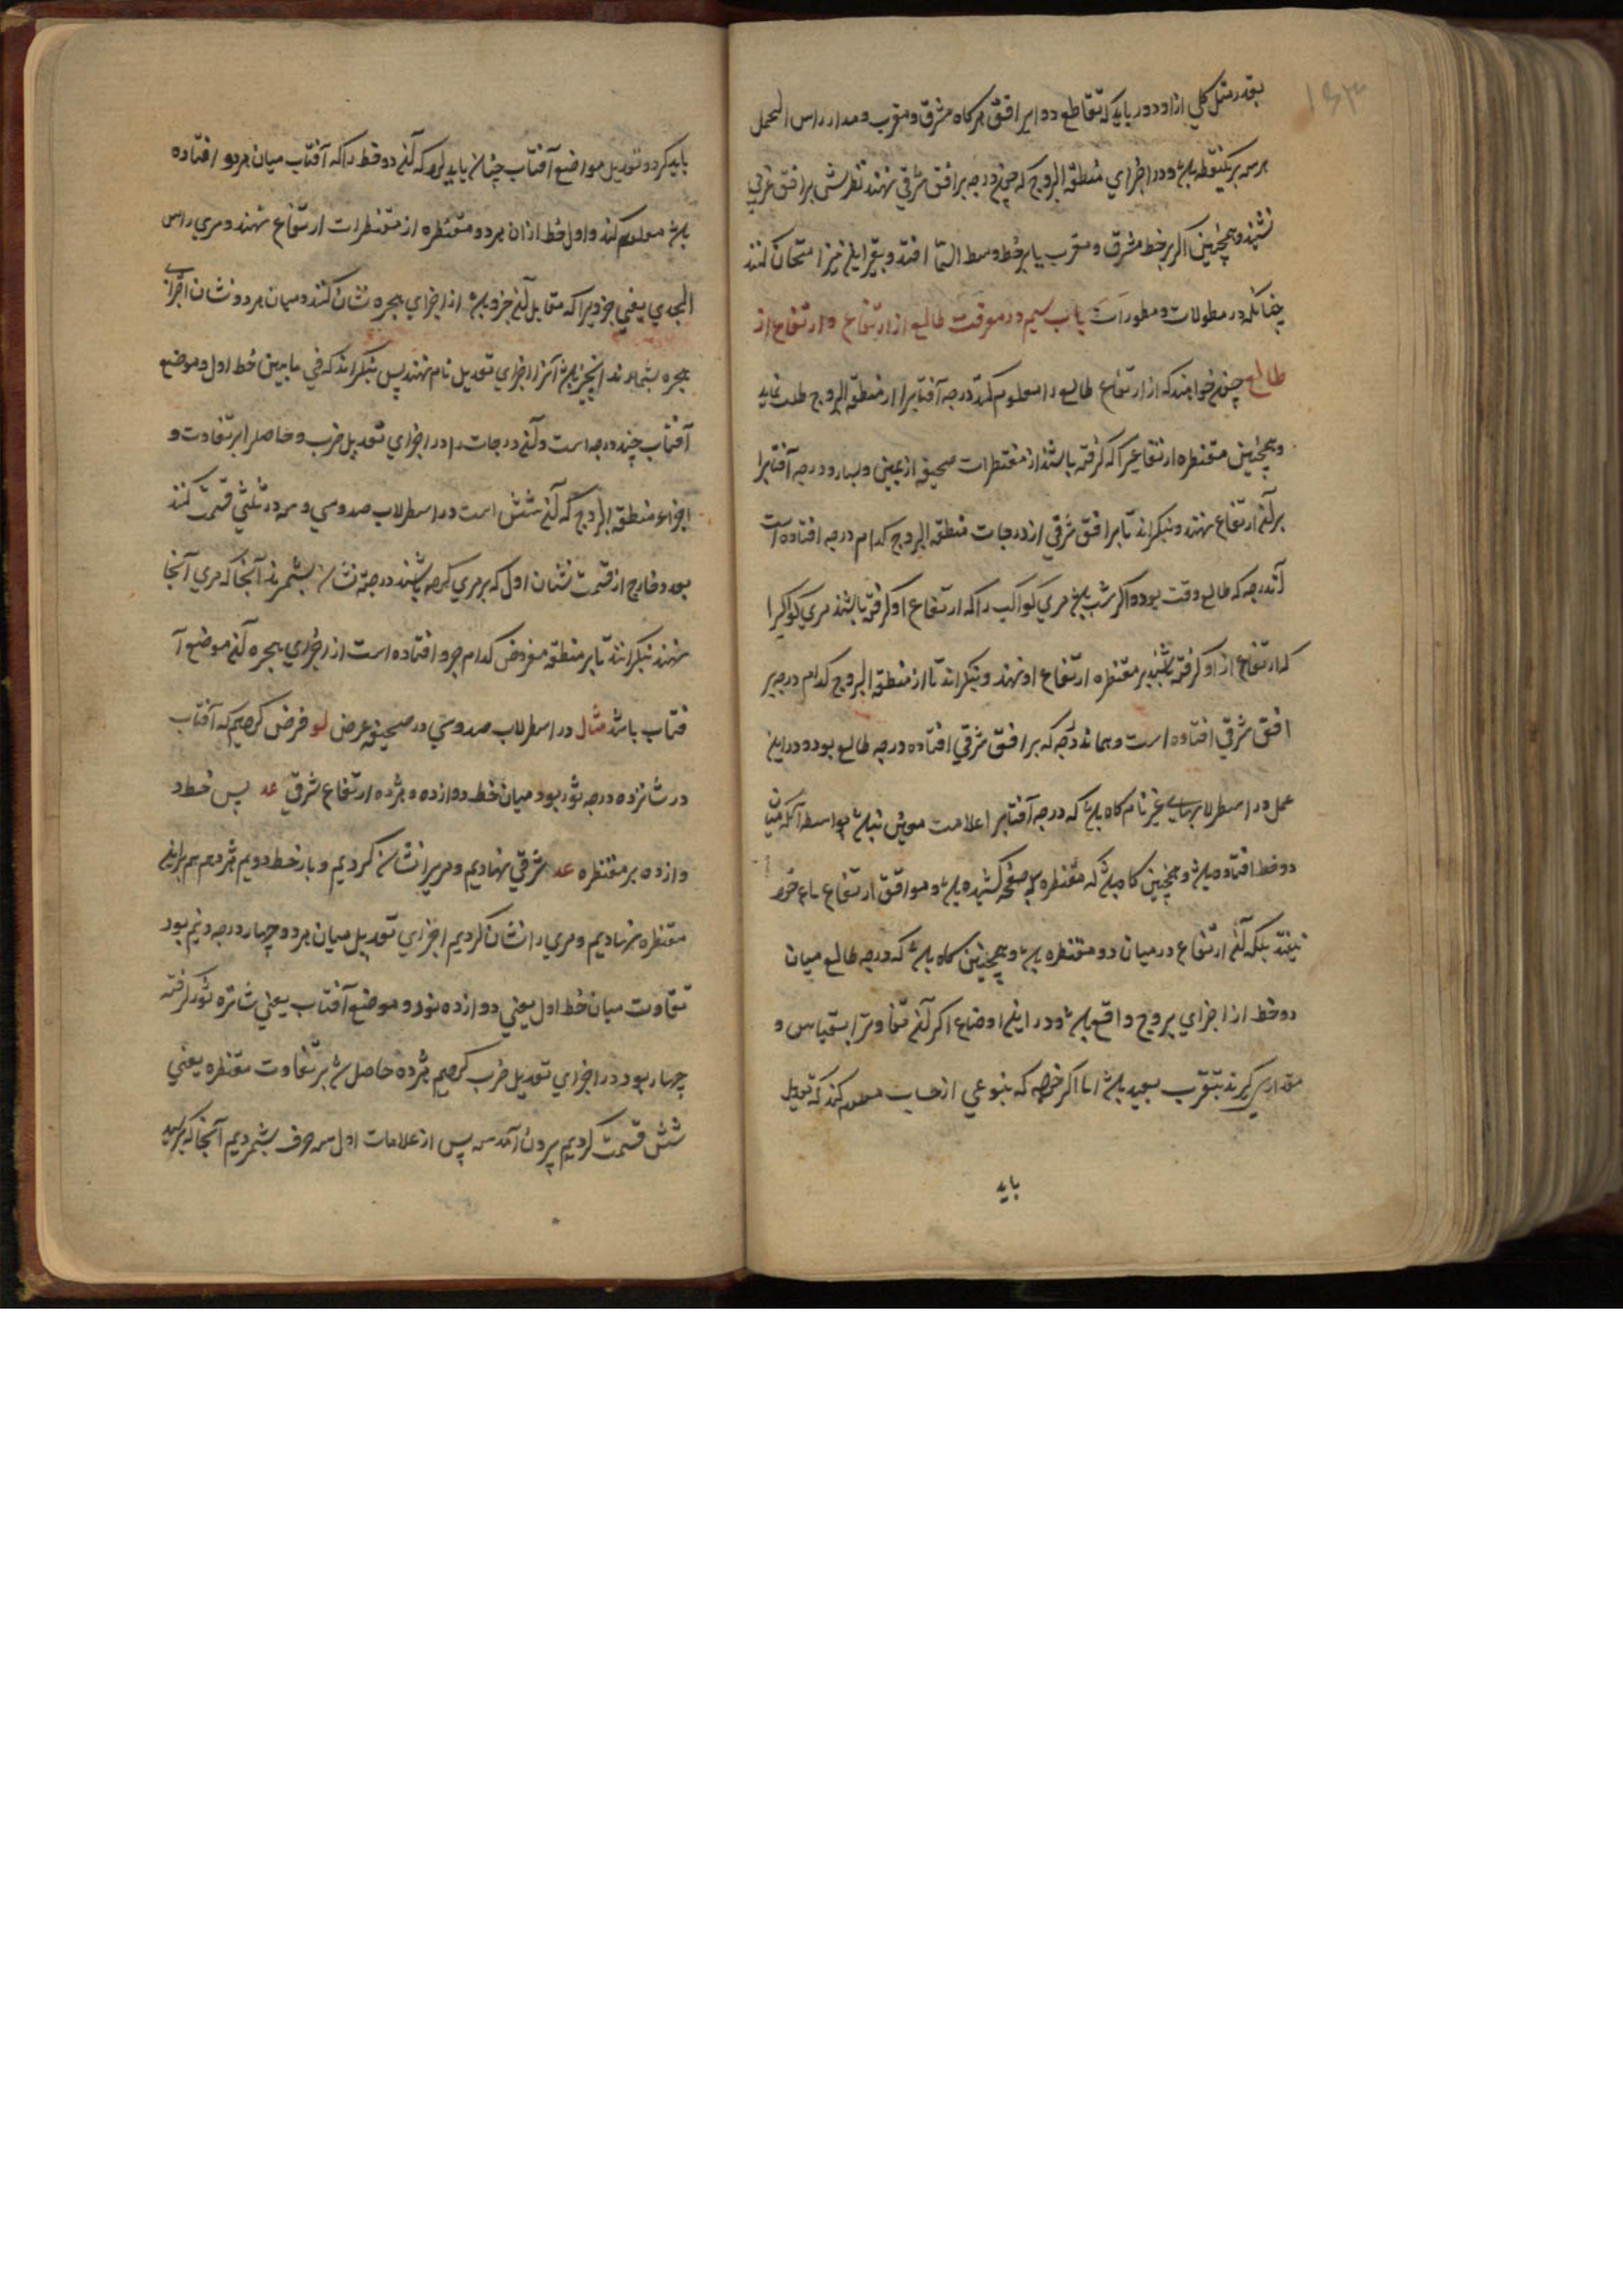 ۱۶۳
بقدر میل کلی از او دور باید که تقاطع دوایر افق هر کاه مشرق و مغرب و مدار راس الحمل
هر سه بر یکنقطه باشد و در اجزای منطقه البروج که چون درجه بر افق شرقی نهند نظیرش بر افق غربی
نشیند و همچنین اگر بر خط مشرق و مغرب یا بر خط وسط السما افتد و بغیر این نیز امتحان کنند
چنانکه در مطولات و مطورات باب سیم در معرفت طالع از ارتفاع و ارتفاع از
طالع چون خواهند که از ارتفاع طالع را معلوم کنند درجه آفتابرا از منطقه البروج طلب نماید
و همچنین مقنطره ارتفاعیرا که گرفته باشند از مقنطرات صحیفه از یمین و یسار و درجه آفتابرا
بر آن ارتفاع نهند و بنکرند تا بر افق شرقی از درجات منطقه البروج کدام درجه افتاده است
آندرجه که طالع وقت بود و اکر شب باشد مری کواکب را که ارتفاع او گرفته باشند مری کوکبرا
که ارتفاع از او گرفته باشند بر مقنطره ارتفاع او نهند و بنکرند تا از منطقه البروج کدام درجه بر
افق شرقی افتاده است و همانه درجه که بر افق شرقی افتاده درجه طالع بود و در این
عمل در اسطرلابهای غیر تام کاه باشد که درجه آفتابرا علامت مویش نباشد بواسطه آنکه میان
دو خط افتاده باشد و همچنین کاه باشد که مقنطره که بر صفحه کشیده باشد و موافق ارتفاع ماخوذ
نیفتد بلکه آن ارتفاع در میان دو مقنطره باشد و همچنین کاه باشد که درجه طالع میان
دو خط از اجزای بروج واقع باشد و در این اوضاع اکر آن تفاوترا بقیاس و
مقدار گیرند بتقرب بعید باشد اما اکر خواهد که بنوعی از حساب معلوم کند که تعدیل
باید
باید کرد و تعدیل مواضع آفتاب چنان باید کرد که آن دو خط را که آفتاب میان هر دو افتاده
باشد معلوم کند و اول خط از ان هر دو مقنطره از مقنطرات ارتفاع نهند و مری راس
الجدی یعنی جزویرا که مقابل آن جزو باشد از اجزای حجره نشان کنند و میان هر دو نشان اجزای
حجره بشمارند انچه باشد آنرا اجزای تعدیل نام نهند پس بنکرند که فی مابین خط اول و موضع
آفتاب چند درجه است و آن درجات را در اجزای تعدیل ضرب و حاصل را بر تفاوت و
اجزاء منطقه البروج که آن شش است در اسطرلاب صدوسی و سه در ثلثی قسمت کنند
بعد خارج از قسمت نشان اول که بر مری کرده باشند درجه نشان بشمرند آنجا که مری آنجا
نهند بنکرند تا بر منطقه مفروض کدام جزو افتاده است از اجزای حجره آن موضع آ
فتاب باشد مثال در اسطرلاب صدوسی در صحیفه عرض لو فرض کردیم که آفتاب
در شانزده درجه ثور بود میان خط دوازده و هژده ارتفاع شرقی عد پس خط د
وازده بر مقنطره عد شرقی نهادیم و مریرا نشان کردیم و باز خط دویم هژدهم هم بر این
مقنطره نهادیم و مری را نشان کردیم اجزای تعدیل میان هر دو چهار درجه و نیم بود
تفاوت میان خط اول یعنی دوازده ثور و موضع آفتاب یعنی شانزه ثور گرفته
چهار بود در اجزای تعدیل ضرب کردیم هژده حاصل شد بر تفاوت مقنطره یعنی
شش قسمت کردیم برون آمد سه پس از علامات اول سه حرف بشمردیم آنجا که برسید